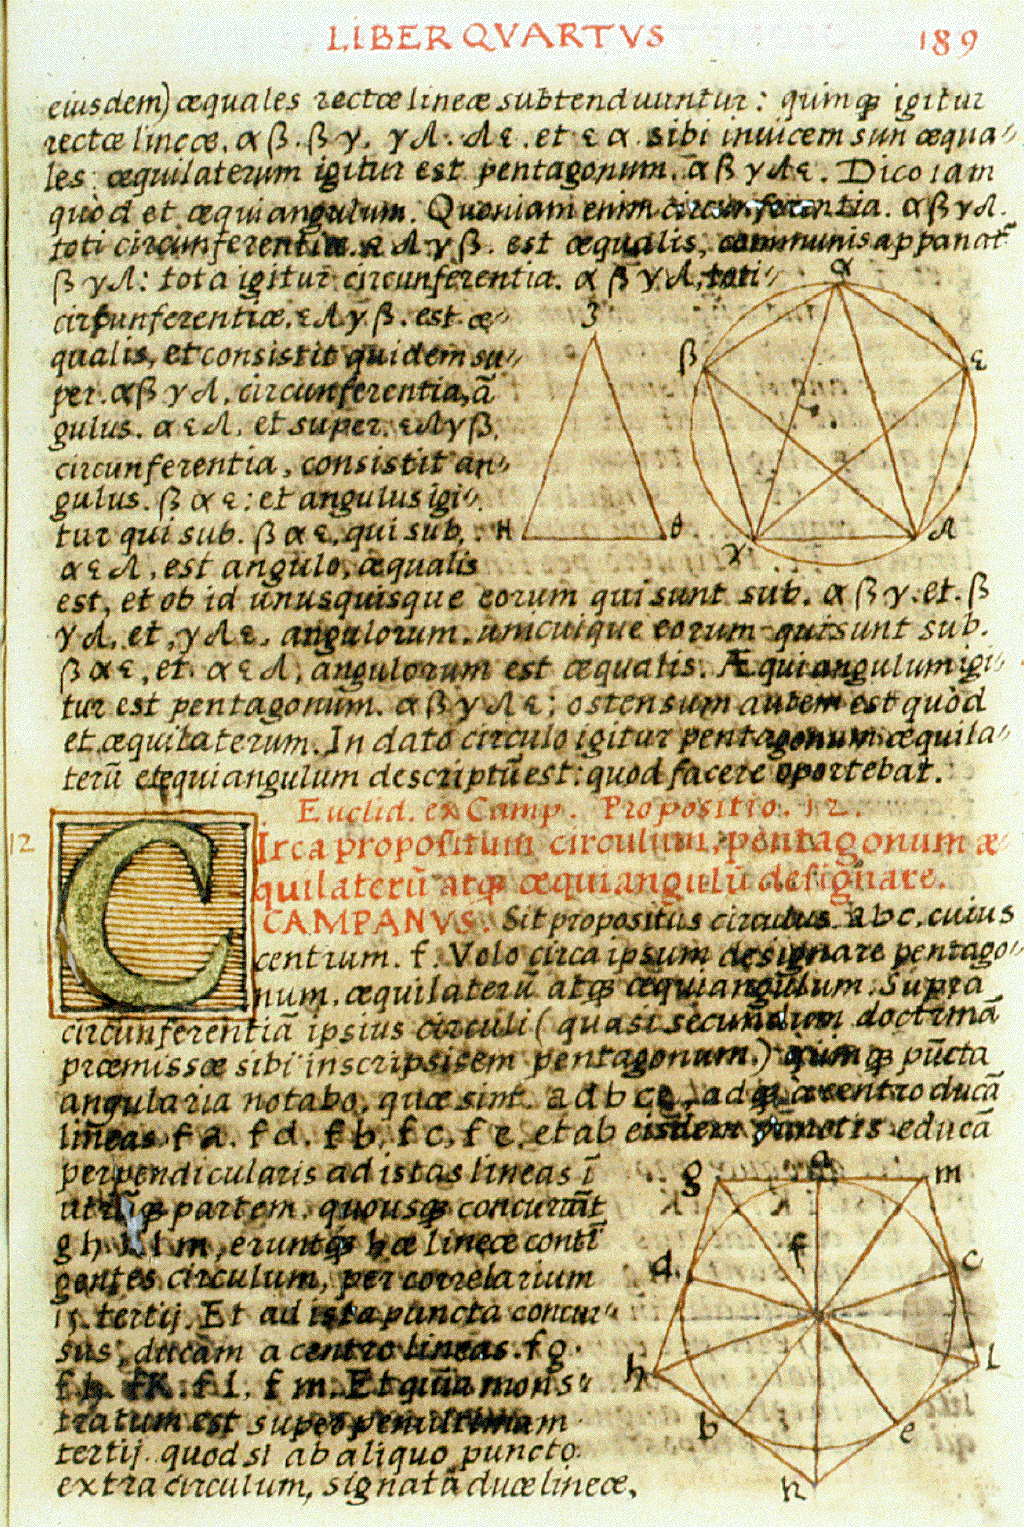 LIBER QVARTVS 189
eiusdem) æquales rectæ lineæ subtenduntur: quinqꝫ igitur
rectæ lineæ. α β. β γ. γ δ. δ ε. et ε α. sibi inuicem sun æqua-
les: æquilaterum igitur est pentagonum. α β γ δ ε. Dico iam
quòd et æquiangulum. Quoniam enim circunferentia. α β γ δ.
toti circunferentiæ. ε δ γ β. est æqualis, communis apponat
β γ δ: tota igitur circunferentia. α β γ δ, toti-
circunferentiæ. ε δ γ β. est æ-
qualis, et consistit quidem su-
per. α β γ δ. circunferentia, ã
gulus. α ε δ. et super. ε δ γ β.
circunferentia, consistit an-
gulus. β α ε: et angulus igi-
tur qui sub. β α ε, qui sub,
α ε δ, est angulo, æqualis
est, et ob id unusquisque eorum qui sunt sub. α β γ. et. β
γ δ, et, γ δ ε. angulorum. unicuique eorum qui sunt sub.
β α ε, et. α ε δ, angulorum est æqualis. Æquiangulum igi-
tur est pentagonum. α β γ δ ε; ostensum autem est quòd
et æquilaterum. In dato circulo igitur pentagonum æquila-
terũ et equiangulum descriptũ est: quod facere oportebat.
Euclid. ex Camp. Propositio. 12.
12
CIrca propositum circulum, pentagonum æ-
quilaterũ atqꝫ æquiangulũ designare.
CAMPANVS. Sit propositus circulus. a b c. cuius
centrum. f. Volo circa ipsum designare pentago-
num. æquilaterũ atqꝫ æquiangulum. Supra
circunferentiã ipsius circuli (quasi secundum doctrinã
præmissæ sibi inscripsisem pentagonum.) quinqꝫ pũcta
angularia notabo, quæ sint. a d b c e, ad quæ a centro ducã
lineas. f a. f d. f b. f c. f e, et ab eisdem punctis educã
perpendicularis ad istas lineas ĩ
utrãqꝫ partem. quousqꝫ concurrãt
g h k l m, eruntqꝫ hæ lineæ contĩ
gentes circulum, per correlarium
15. tertij. Et ad ista puncta concur-
sus, ducam a centro lineas. f g.
f h. f k. f l. f m. Et quia mons-
tratum est super penultimam
tertij. quod si ab aliquo puncto
extra circulum, signatã duæ lineæ,
α
β
ε
γ
δ
3
H
θ
g
a
m
k
k
f
d
c
h
l
b
e
h